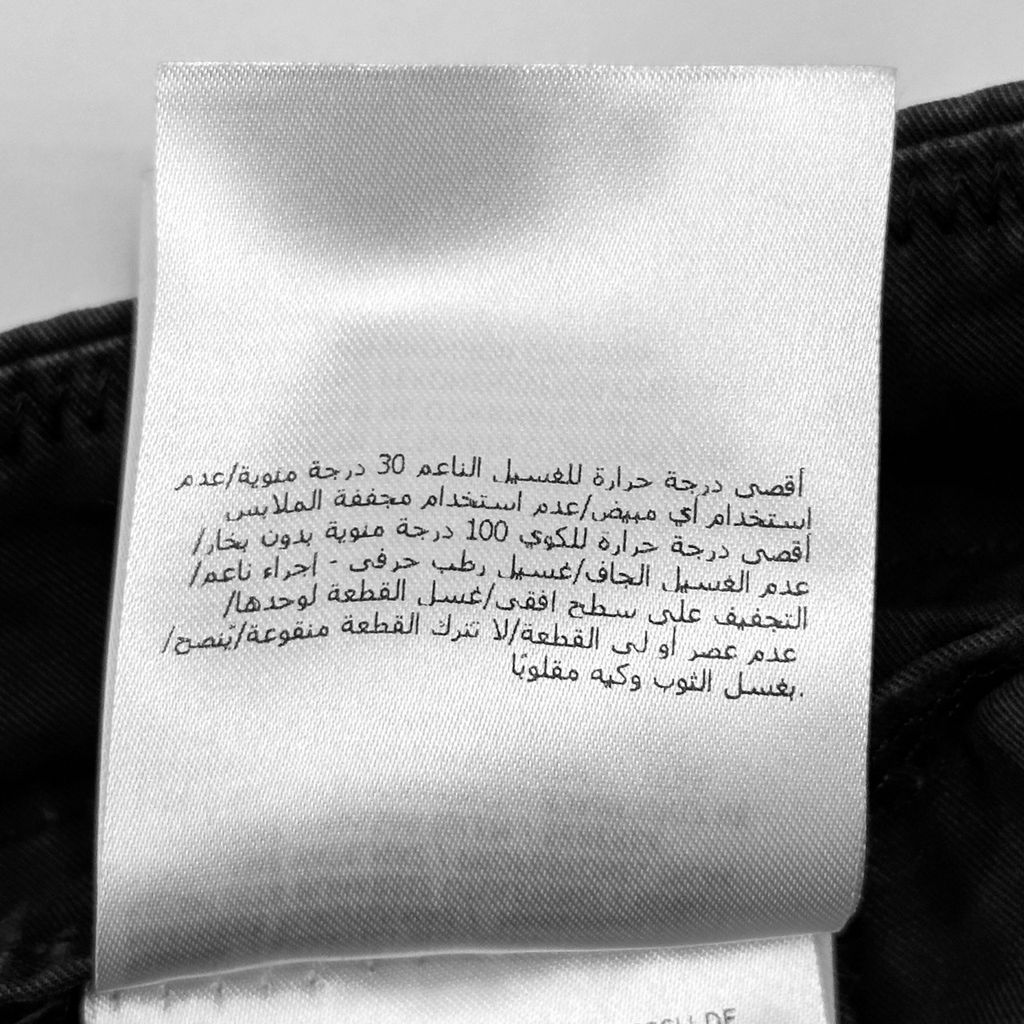 أقصى درجة حرارة للغسيل الناعم 30 درجة مئوية/عدم
استخدام أي مبيض/عدم استخدام مجففة الملابس
أقصى درجة حرارة للكوي 100 درجة مئوية بدون بخار/
عدم الغسيل الجاف/غسيل رطب حرفى - اجراء ناعم/
التجفيف على سطح افقى/غسل القطعة لوحدها/
عدم عصر أو لى القطعة/لا تترك القطعة منقوعة/يُنصح/
بغسل الثوب وكيه مقلوبًا.
DE